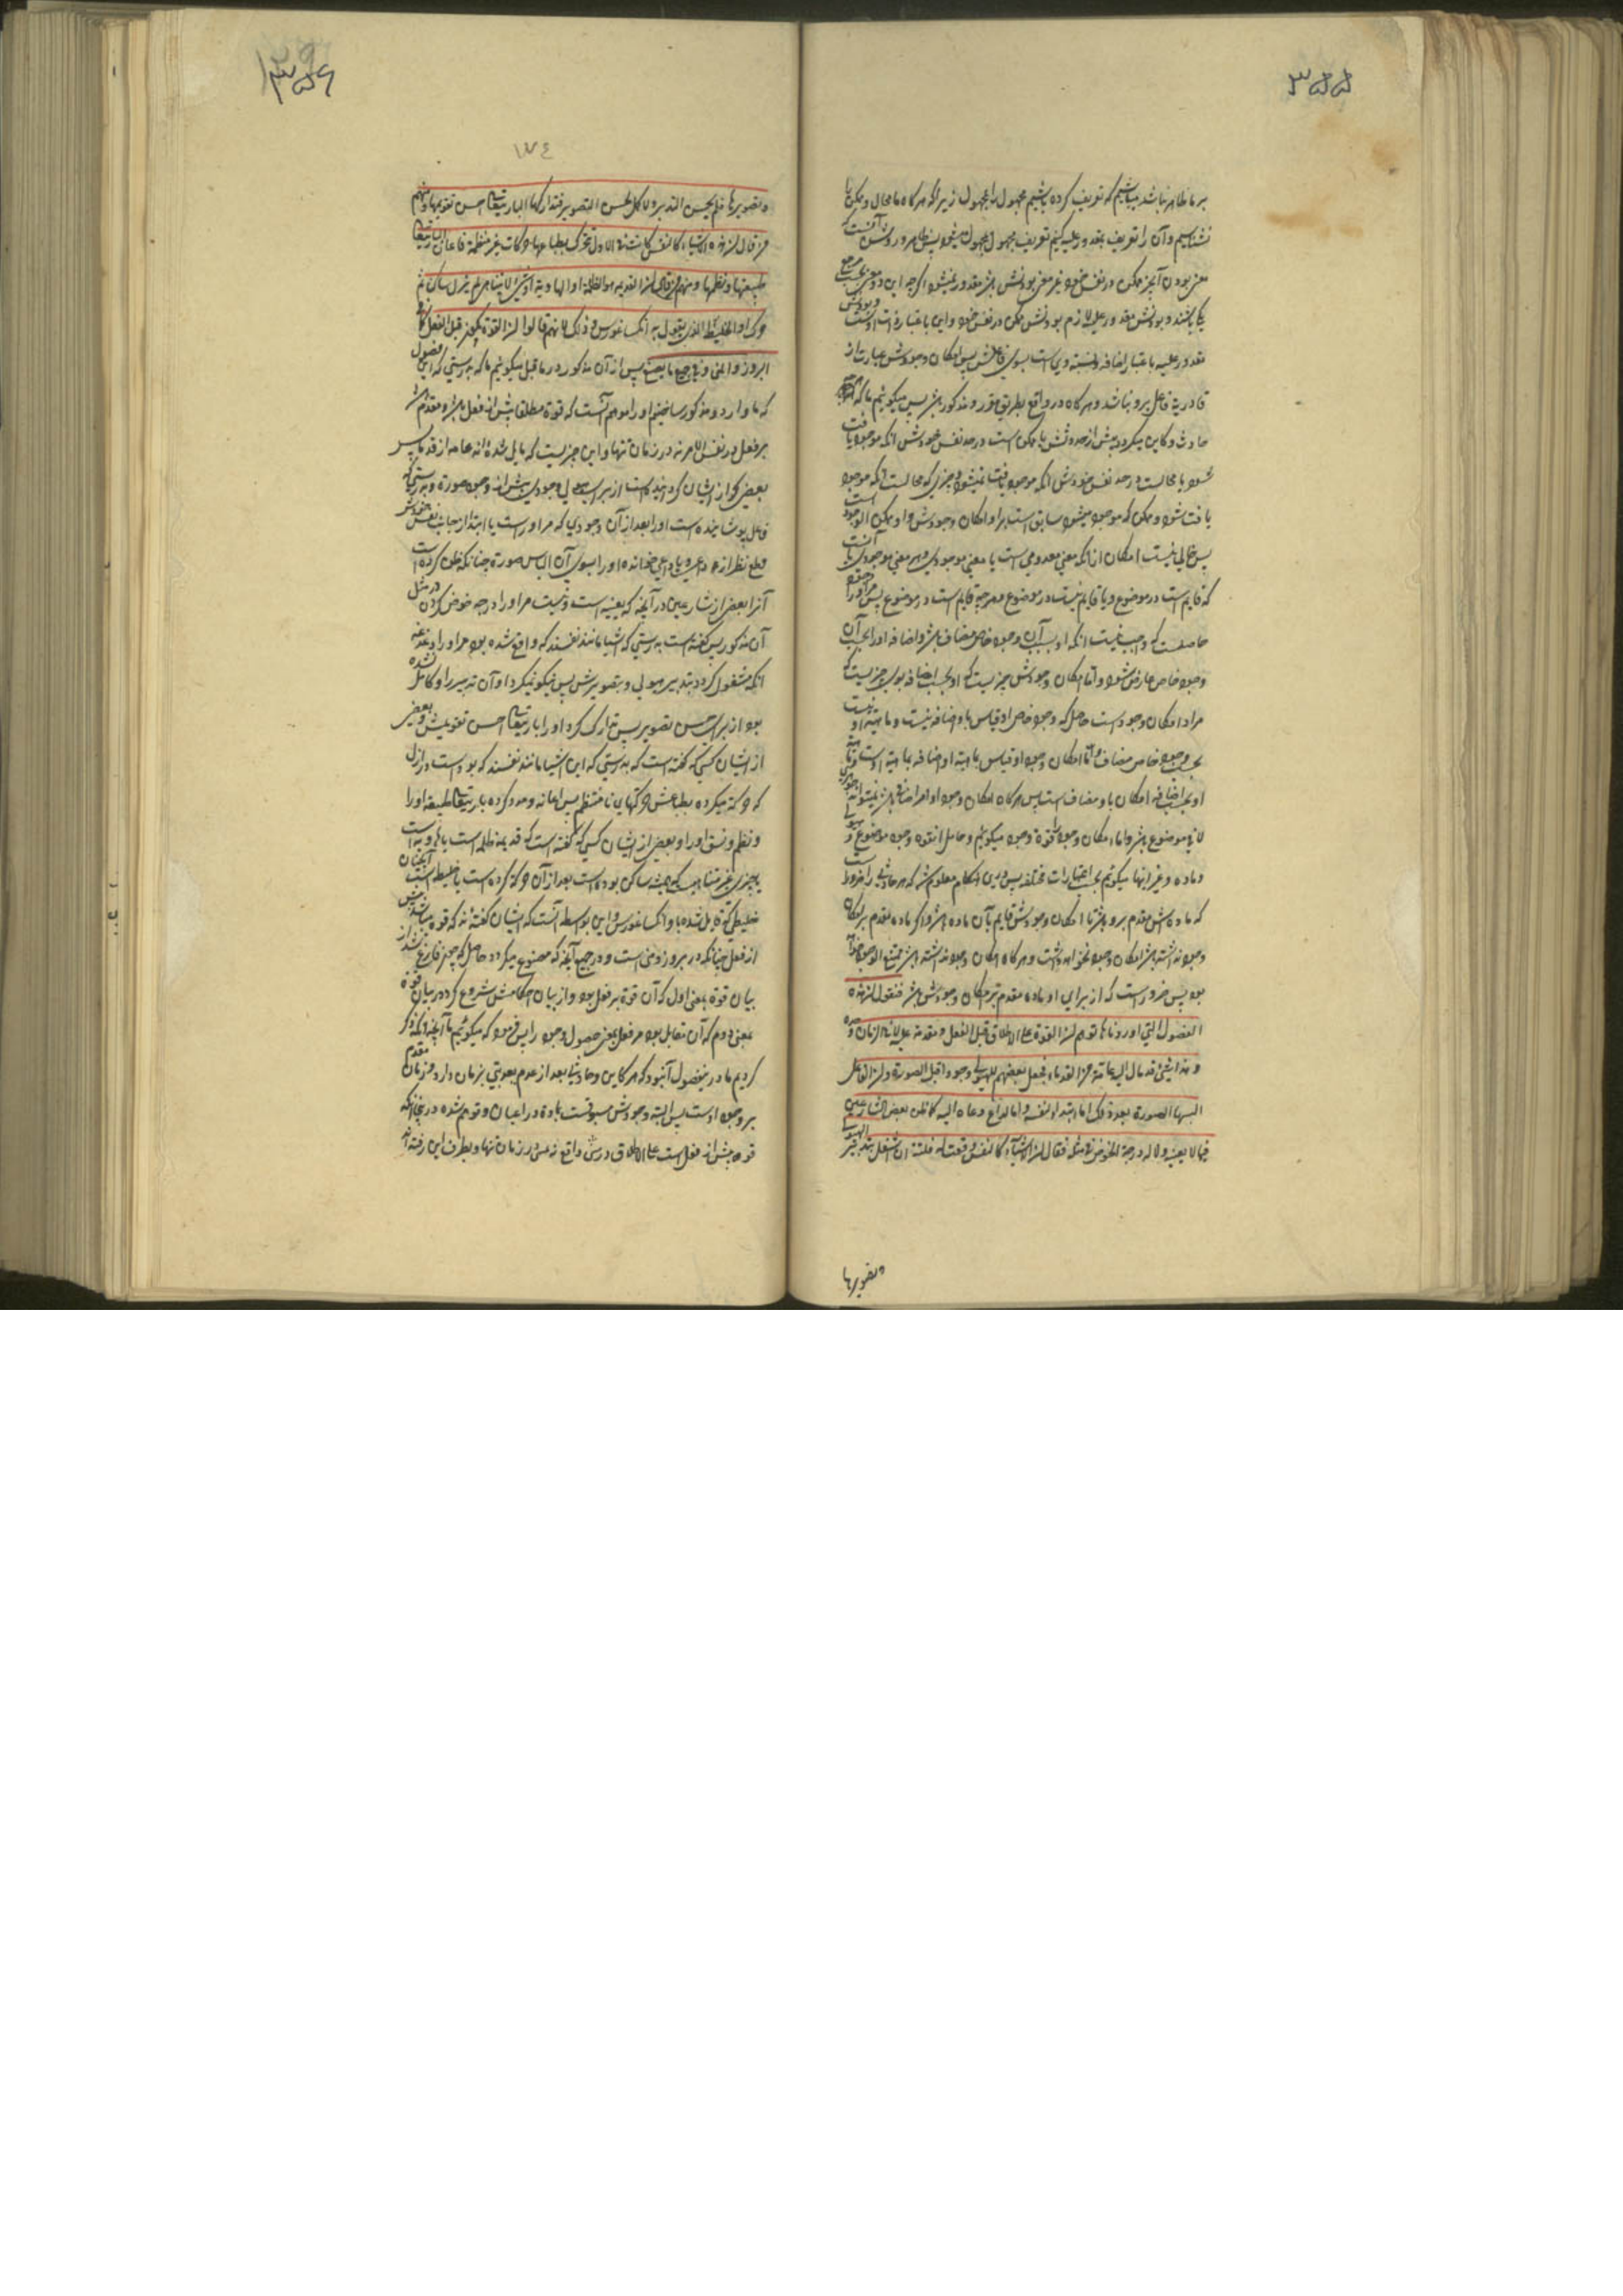 ۳۵۵
بر ما ظاهر نباشد میباشیم که تعریف کرده باشیم مجهول را بمجهول زیرا که هرگاه ما محال و ممکن را
نشناسیم و آن را تعریف بمقدور علیه کنیم تعریف مجهول بمجهول میشود پس ظاهر و روشن آنست که
معنی بودن آن چیز ممکن در نفس خود غیر معنی بودنش مقدور میشود اگرچه این دو معنی بحسب
یکی باشند و بودنش مقدور علیه لازم بودنش ممکن در نفس خود و این باعتبار ذات اوست و بودنش
مقدور علیه باعتبار اضافه ویست بسوی فاعلش پس امکان وجودش عبارت از
قادریة فاعل برو نباشد و هرگاه در واقع بطریق مقرر و مذکور باشد پس میگوئیم ما که هر
حادث و کاین میگردد پیش از حدوثش یا ممکن است در حد نفس خودش آنکه موجود یافت
شود یا محالست در حد نفس خودش آنکه موجود یافت نمیشود و چیزی که محالست آنکه موجود
یافت شود و ممکن که موجود میشود سابق است برو امکان وجودش و او ممکن الوجود است
پس خالی نیست امکان از آنکه معنی معدومی است یا معنی موجودی و هر معنی موجودی یا آنست
که قایم است در موضوع و یا قایم نیست در موضوع و هرچه قایم است در موضوع پس مر او را
حاصلست که واجب نیست آنکه او بسبب آن وجود خاص مضاف باشد و اضافه او را بحسب آن
وجود خاص عارض شود و اما امکان وجودش چیزیست که او بحسب اضافه بسوی چیزیست که
مراد امکان وجود است حاصل که وجود خاص او قیاس باو اضافه نیست و ماهیة او
بحسب وجود خاص مضاف و اما امکان وجود او قیاس بماهیة او اضافه بماهیة اوست
او بحسب اضافه امکان باو مضاف است پس هرگاه امکان وجود او امر اضافی باشد نمیتواند
لا فی موضوع باشد و اما امکان وجود را قوة وجود میگوئیم و حامل این قوه وجود موضوع و هیولی
و ماده و غیر اینها میگوئیم بحسب اعتبارات مختلفه پس درین هنگام معلوم شد که هر حادثی را ضرور است
که ماده اش مقدم برو باشد تا امکان وجودش قایم بآن ماده باشد و اگر ماده مقدم بر امکان
وجود نداشته باشد امکان وجود نخواهد داشت و هرگاه امکان وجود نداشته باشد ممتنع الوجود خواهد
بود پس ضرور است که از برای او ماده مقدم بر امکان وجودش باشد فنقول ان هذه
الفصول التی اوردناها توهم ان القوة علی الاطلاق قبل الفعل و متقدمة علیه لا فی الزمان وحده
و هذا شئ قد مال الیه عامة من القدماء فجعل بعضهم للهیولی وجودا قبل الصورة و ان الفاعل
البسها الصورة بعد ذلک اما ابتداء لنفسه و اما لداع دعاه الیه کما ظن بعض الشارعین
فیما لا یعنیه و لا له درجة الخوض فی مثله فقال ان الاشیاء کالنفس وقعت له فلتة ان اشتغل بتدبیر الهیولی
و تصویرها
۳۵۶
۱۷۴
و تصویرها فلم یحسن التدبیر و لا کمل لحسن التصویر فتدارکها الباری تعالی احسن تقویمها و منهم
من قال ان هذه الاشیاء کالنفس کانت فی الازل تتحرک بطباعها حرکات غیر منتظمة فاعان الباری تعالی
طبیعتها و نظمها و منهم من قال ان القدیم هو الظلمة او الهاویة او شئ لا یتناهی لم یزل ساکن ثم
حرک او الخلیط الذی یقول به انکساغورس و ذلک لانهم قالوا ان القوة یکون قبل الفعل کما فی
البزور و المنی و فی جمیع ما یصنع پس از آن مذکور در ما قبل میگوئیم ما که بدرستی که این فصول
که ما وارد و مذکور ساختیم او را موهم آنست که قوة مطلقا پیش از فعل باشد و مقدم باشد
بر فعل در نفس الامر نه در زمان تنها و این چیزیست که مایل شده اند عامه از قدما پس
بعضی که از ایشان گردانیده است از برای هیولی وجودی پیش از وجود صورة و بدرستی که
فاعل پوشانیده است او را بعد از آن وجودی که مر او راست یا ابتدا از جانب نفس خودش
قطع نظر از داعی و یا داعی خوانده او را بسوی آن الباس صورة چنانکه ظن کرده است
آنرا بعضی از شارعین در آنچه که بعینه است و نیست مر او را درجه خوض کردن در مثل
آن مذکور پس گفته است بدرستی که اشیا مانند نفسند که واقع شده بود مر او را دفعة
آنکه مشغول گردد بتدبیر هیولی و بتصویرش پس نیکو نمیکرد او آن تدبیر را و کامل نشده
بود از برای حسن تصویر پس تدارک کرد او را باری تعالی احسن تقویمش و بعضی
از ایشان کسی که گفته است که بدرستی که این اشیا مانند نفسند که بوده است در ازل
که حرکت میکرده بطباعش حرکتهای نا منتظم پس اعانه و مدد کرده باری تعالی طبیعة او را
و نظم و نسق او را و بعضی از ایشان کسی که گفته است که قدیم ظلمه است یا هاویه است
یا چیزی غیر متناهی که همیشه ساکن بوده است بعد از آن حرکت کرده است یا خلیط است آنچنان
خلیطی که قایل شده باو انکساغورس و این بواسطه آنست که ایشان گفته اند که قوه میباشد پیش
از فعل چنانکه در بزور و منی است و در جمیع آنچه که مصنوع میگردد حاصل که چون فارغ شد از
بیان قوة بمعنی اول که آن قوة بر فعل بود و از بیان احکامش شروع کرد در بیان قوة
بمعنی دوم که آن مقابل بود مر فعل بمعنی حصول وجود را پس فرمود که میگوئیم ما آنچه که ذکر
کردیم ما در این فصول آن بود که هر کاین و حادثی بعد از عدم بعدیتی بزمان دارد و زمان مقدم
بر وجود اوست پس البته وجودش مسبوقست بماده در اعیان و توهم شده در اینجا آنکه
قوه پیش از فعل است علی الاطلاق در نفس واقع نه همین در زمان تنها و بطرف این رفته اند